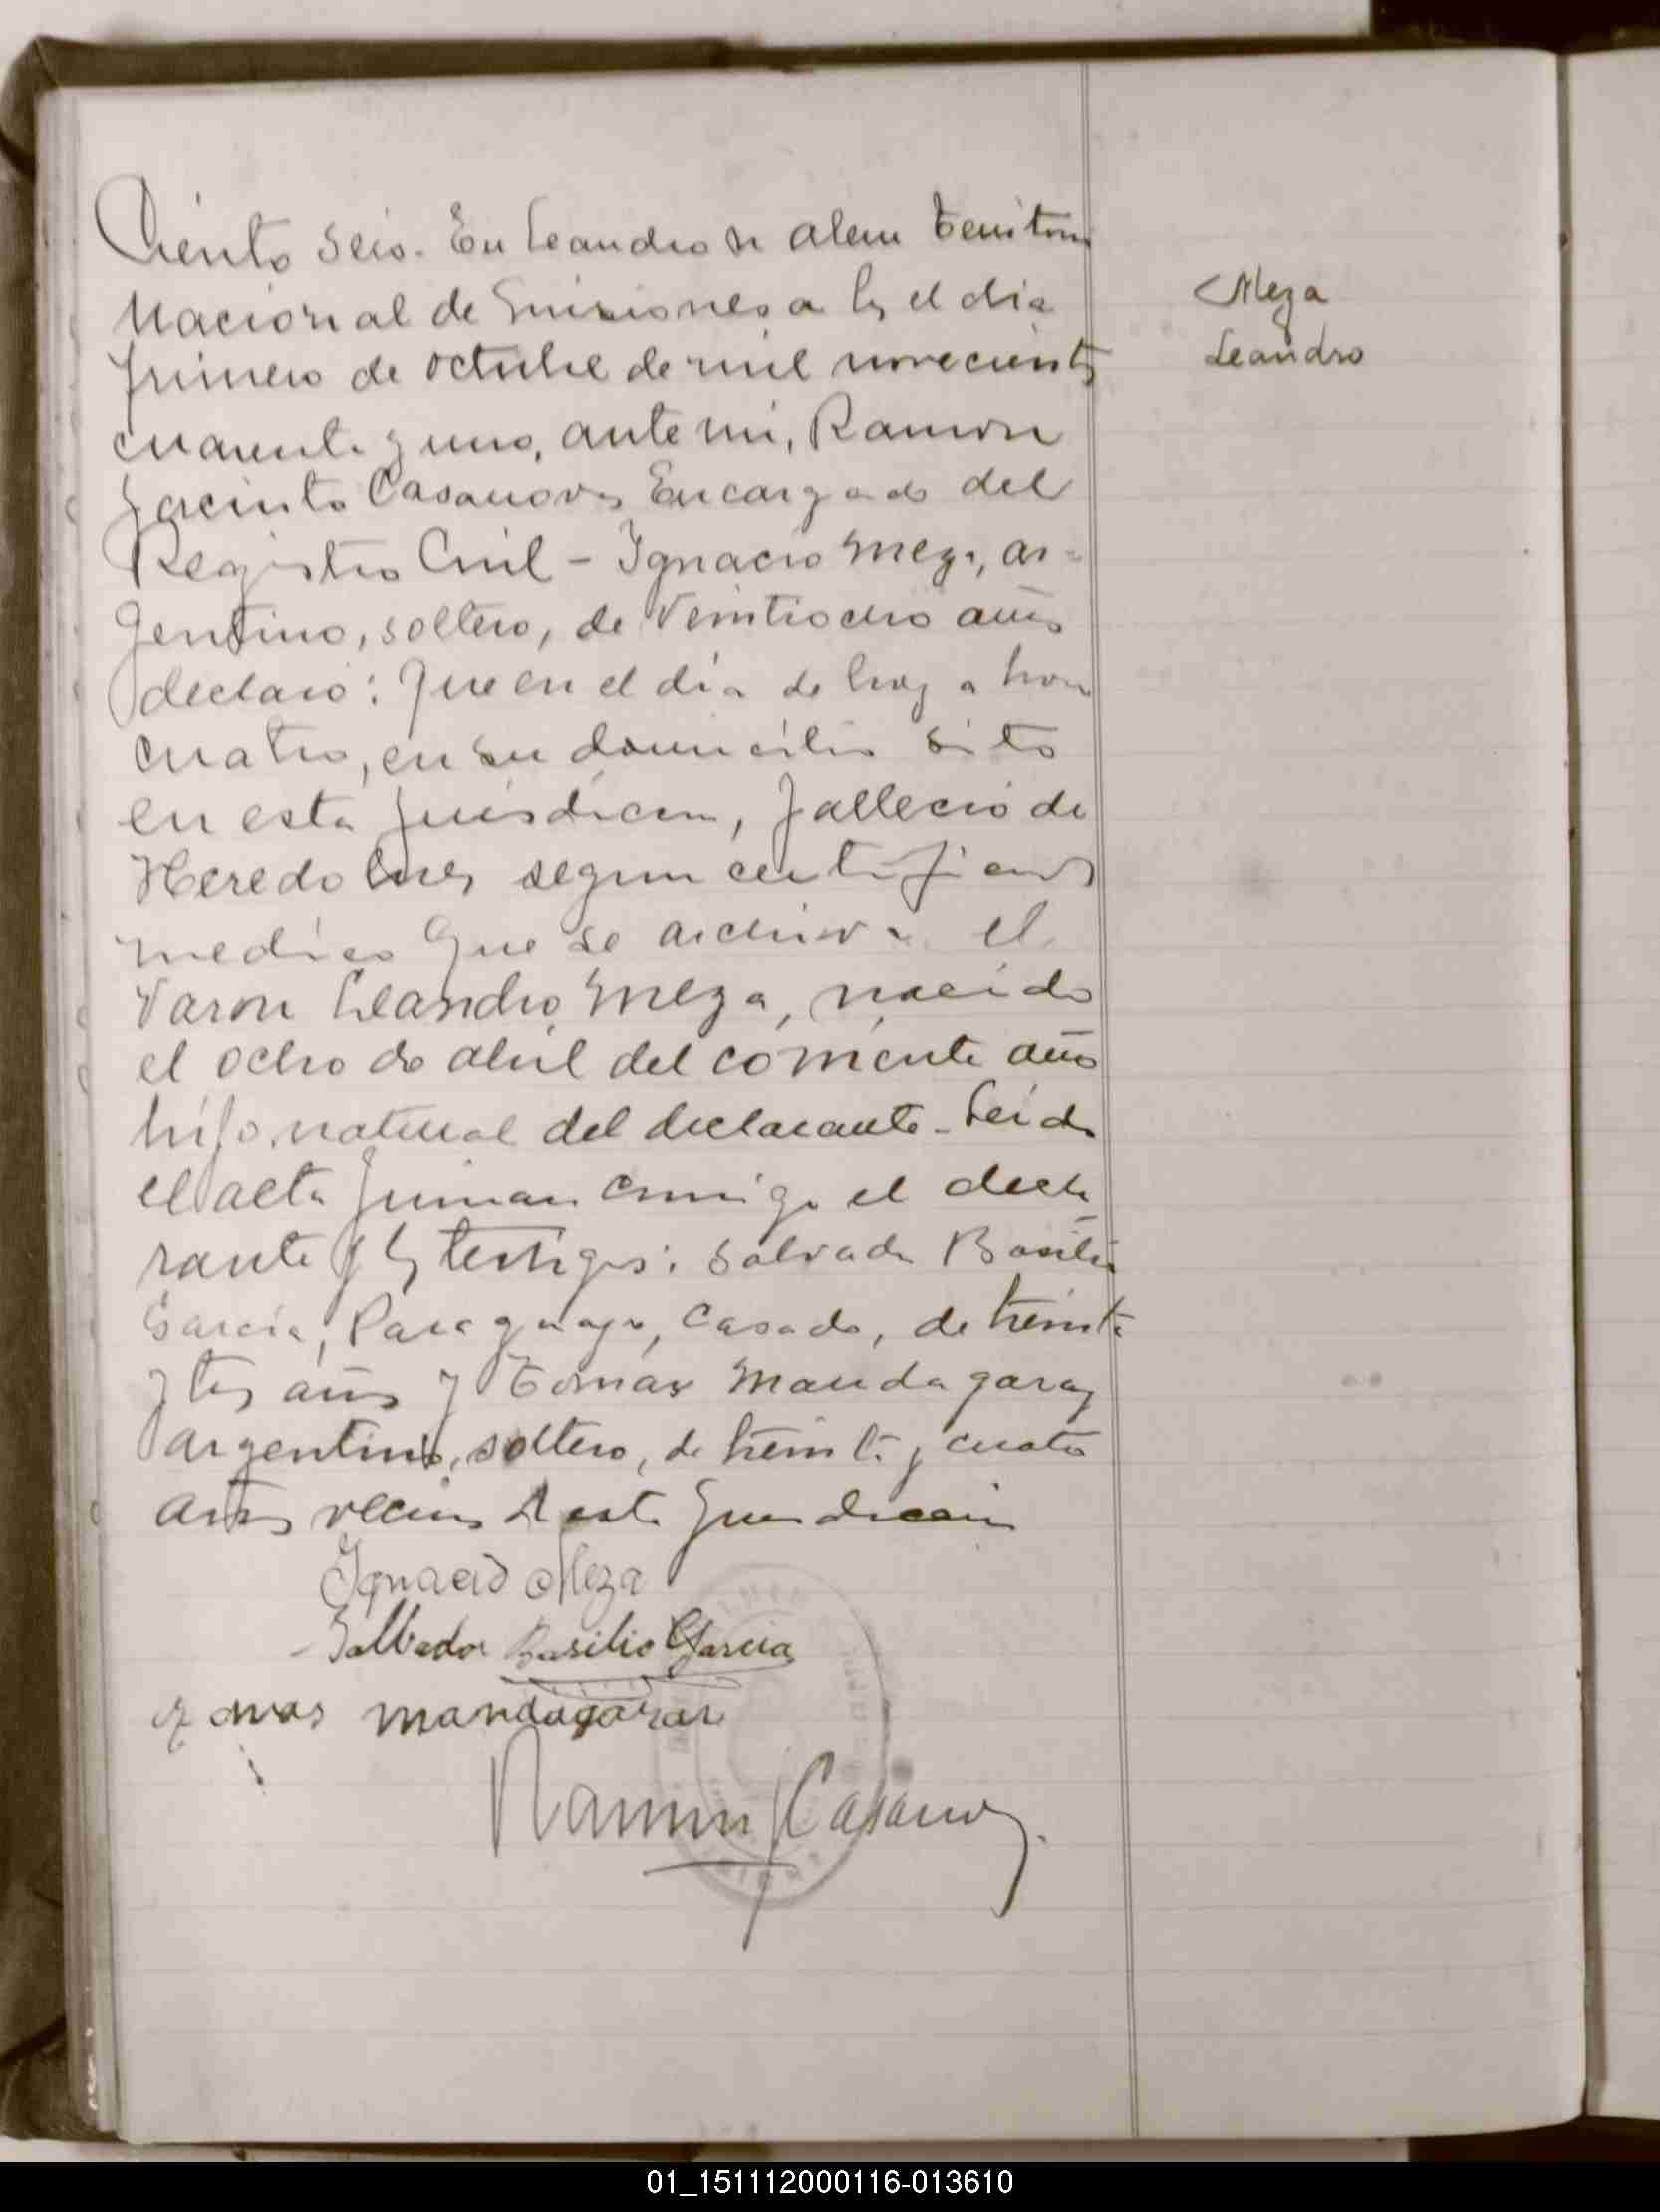 Ciento seis. En Leandro N Alem Territorio
Nacional de Misiones a los el dia
primero de octubre de mil novecientos
cuarenta y uno, ante mi, Ramon
Jacinto Casanova Encargado del
Registro Civil - Ignacio Meza, ar-
gentino, soltero, de veintiocho años
declaró: Que en el día de hoy a hora
cuatro, en su domicilio sito
en esta jurisdiccion, falleció de
Heredo lues segun certificado
medico que se archiva el
Varon Leandro Meza, nacido
el ocho de abril del corriente año
hijo natural del declarante - Leida
el acta firman conmigo el decla
rante y los testigos: Salvador Basilio
Garcia, Paraguayo, casado, de treinta
y tres años y Tomas Mandagaray
argentino, soltero, de treinta y cuatro
años vecinos de esta jurisdiccion
Ignacio Meza
Salbador Basilio Garcia
mandagarai
Ramon J Casanova
Meza
Leandro
01_151112000116-013610